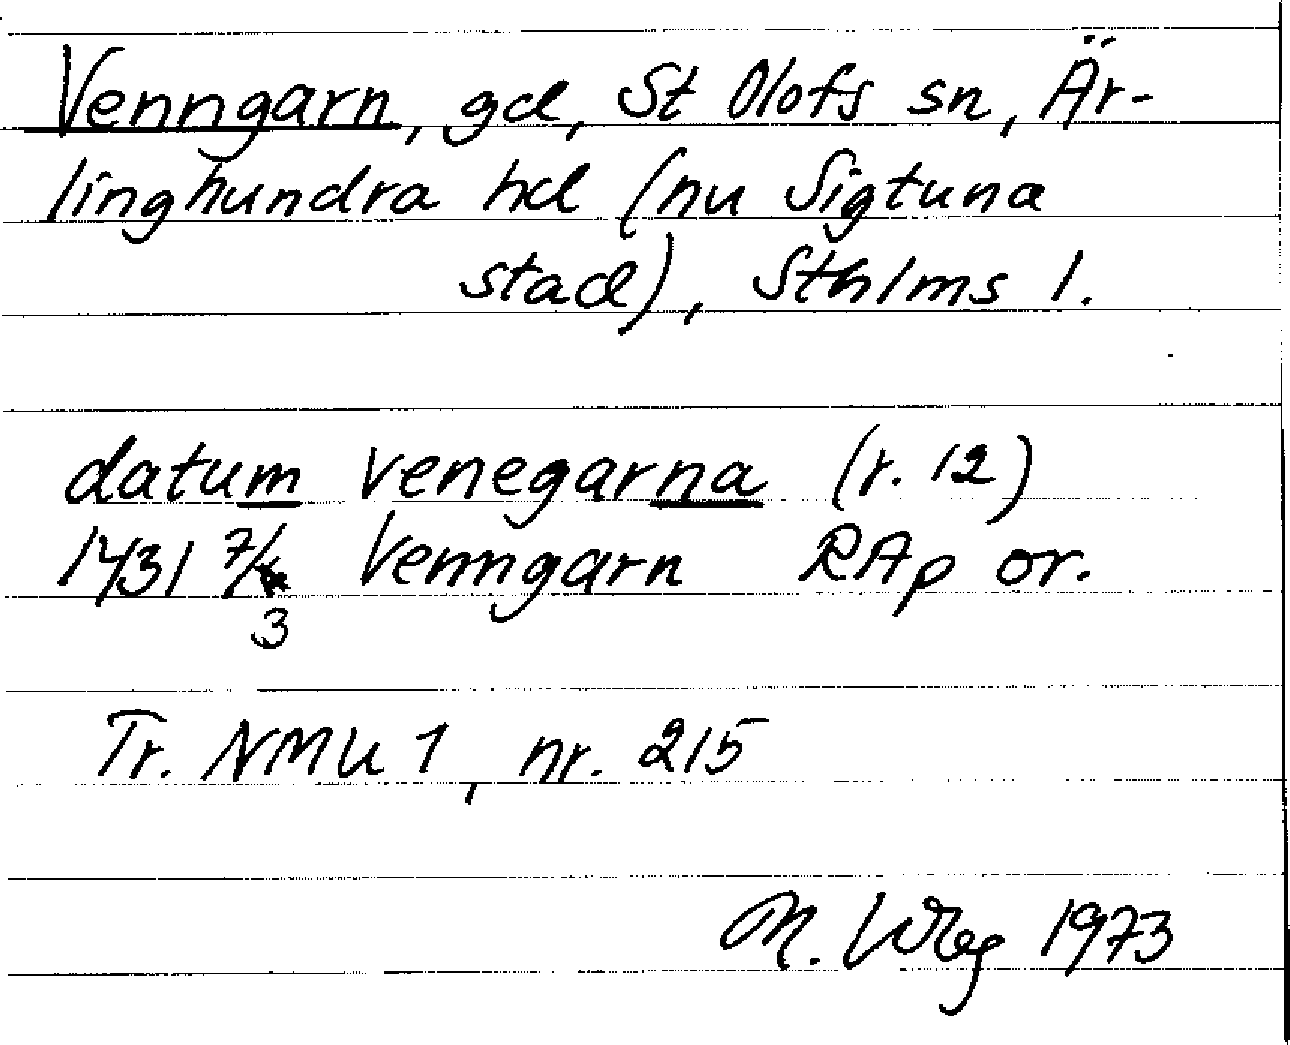 Venngarn, gd, St Olofs sn, Är-
linghundra hd (nu Sigtuna
stad), Sthlms l.
datum venegarna (r. 12)
1431 7/3 Venngarn RAp or.
Tr. NMU 1, nr. 215
M. Wreg 1973